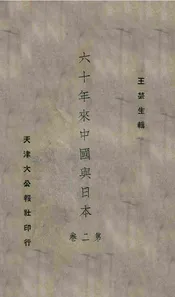 王芸生輯
六十年來中國與日本
第二卷
天津大公報社印行